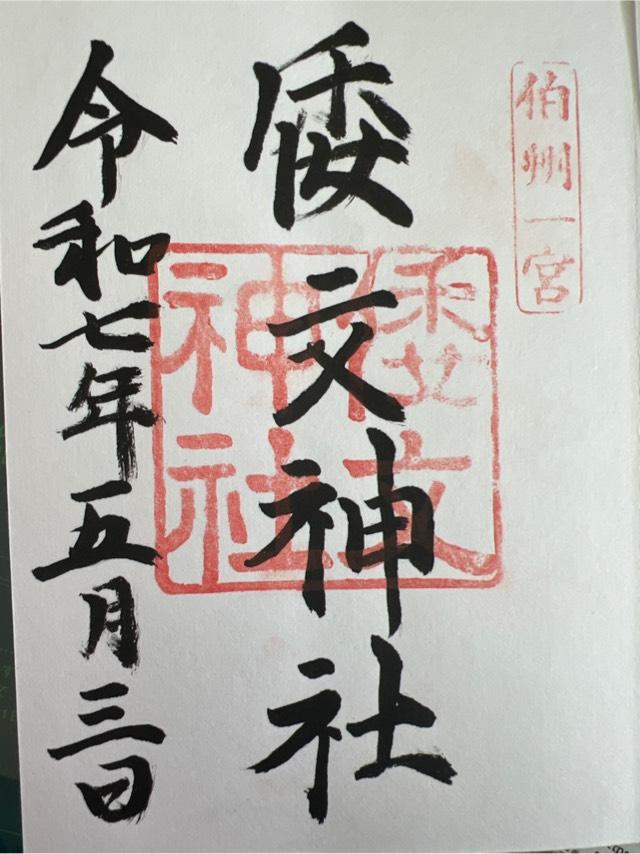 伯州一宮
倭文神社
倭文
神社
令和七年五月三日